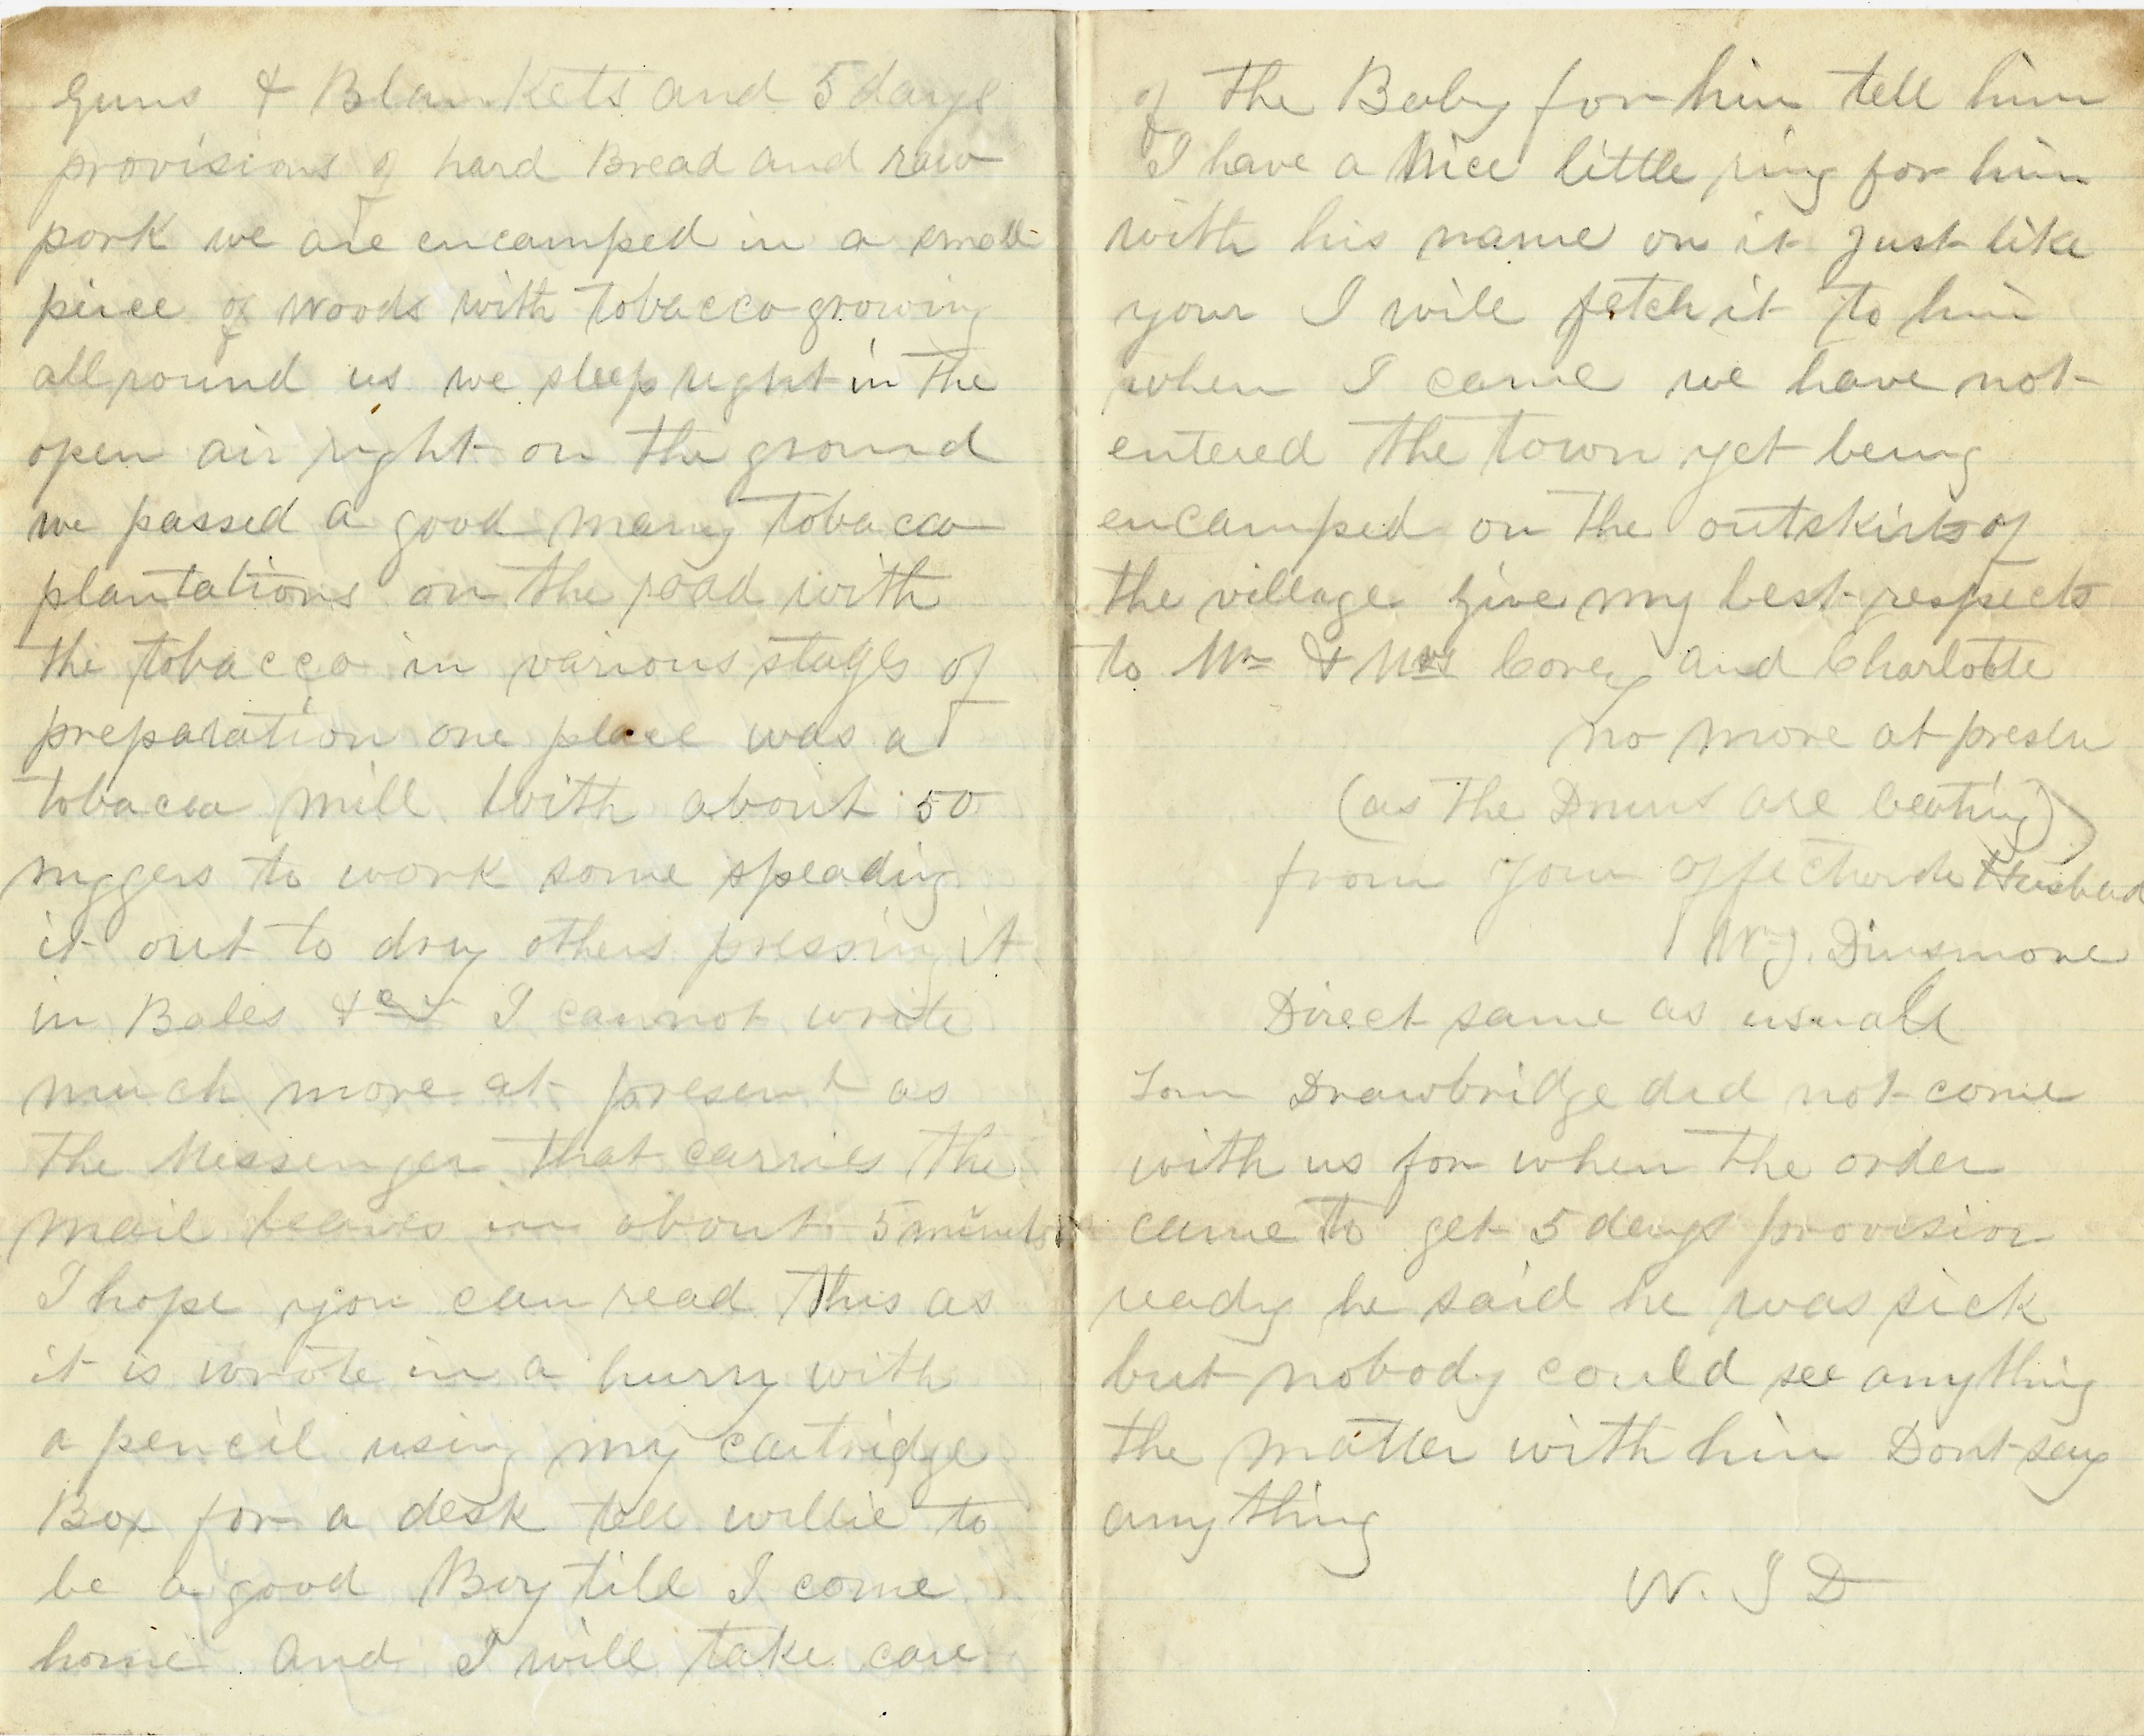 Guns & Blankets and 5 days
provisions of hard Bread and raw
pork we are encamped in a small
peice of woods with tobacco growing
all round us we sleep right in the
open air right on the ground
we passed a good many tobacco
plantations on the road with
the tobacco in various stages of
preparation one place was a
tobacco mill With about 50
niggers to work some speading
it out to dry others pressing it
in Bales &c I cannot write
much more at present as
the Messenger that carries the
mail leaves in about 5 minutes
I hope you can read this as
it is wrote in a hurry with
a pencil using my cartridge
Box for a desk tell willie to
be a good Boy till I come
home and I will take care
of the Baby for him tell him
I have a Nice little ring for him
with his name on it just like
your I will fetch it to him
when I come we have not
entered the town yet being
encamped on the outskirts of
the village Give my best respects
to Mr & Mrs Corey and Charlotte
no more at presen
(as the Drums are beating)
from your affectionate Husband
Wm J. Dinsmore
Direct same as usuall
Tom Drawbridge did not come
with us for when the order
came to get 5 days provision
ready he said he was sick
but nobody could see anything
the matter with him Dont say
anything
W. J D